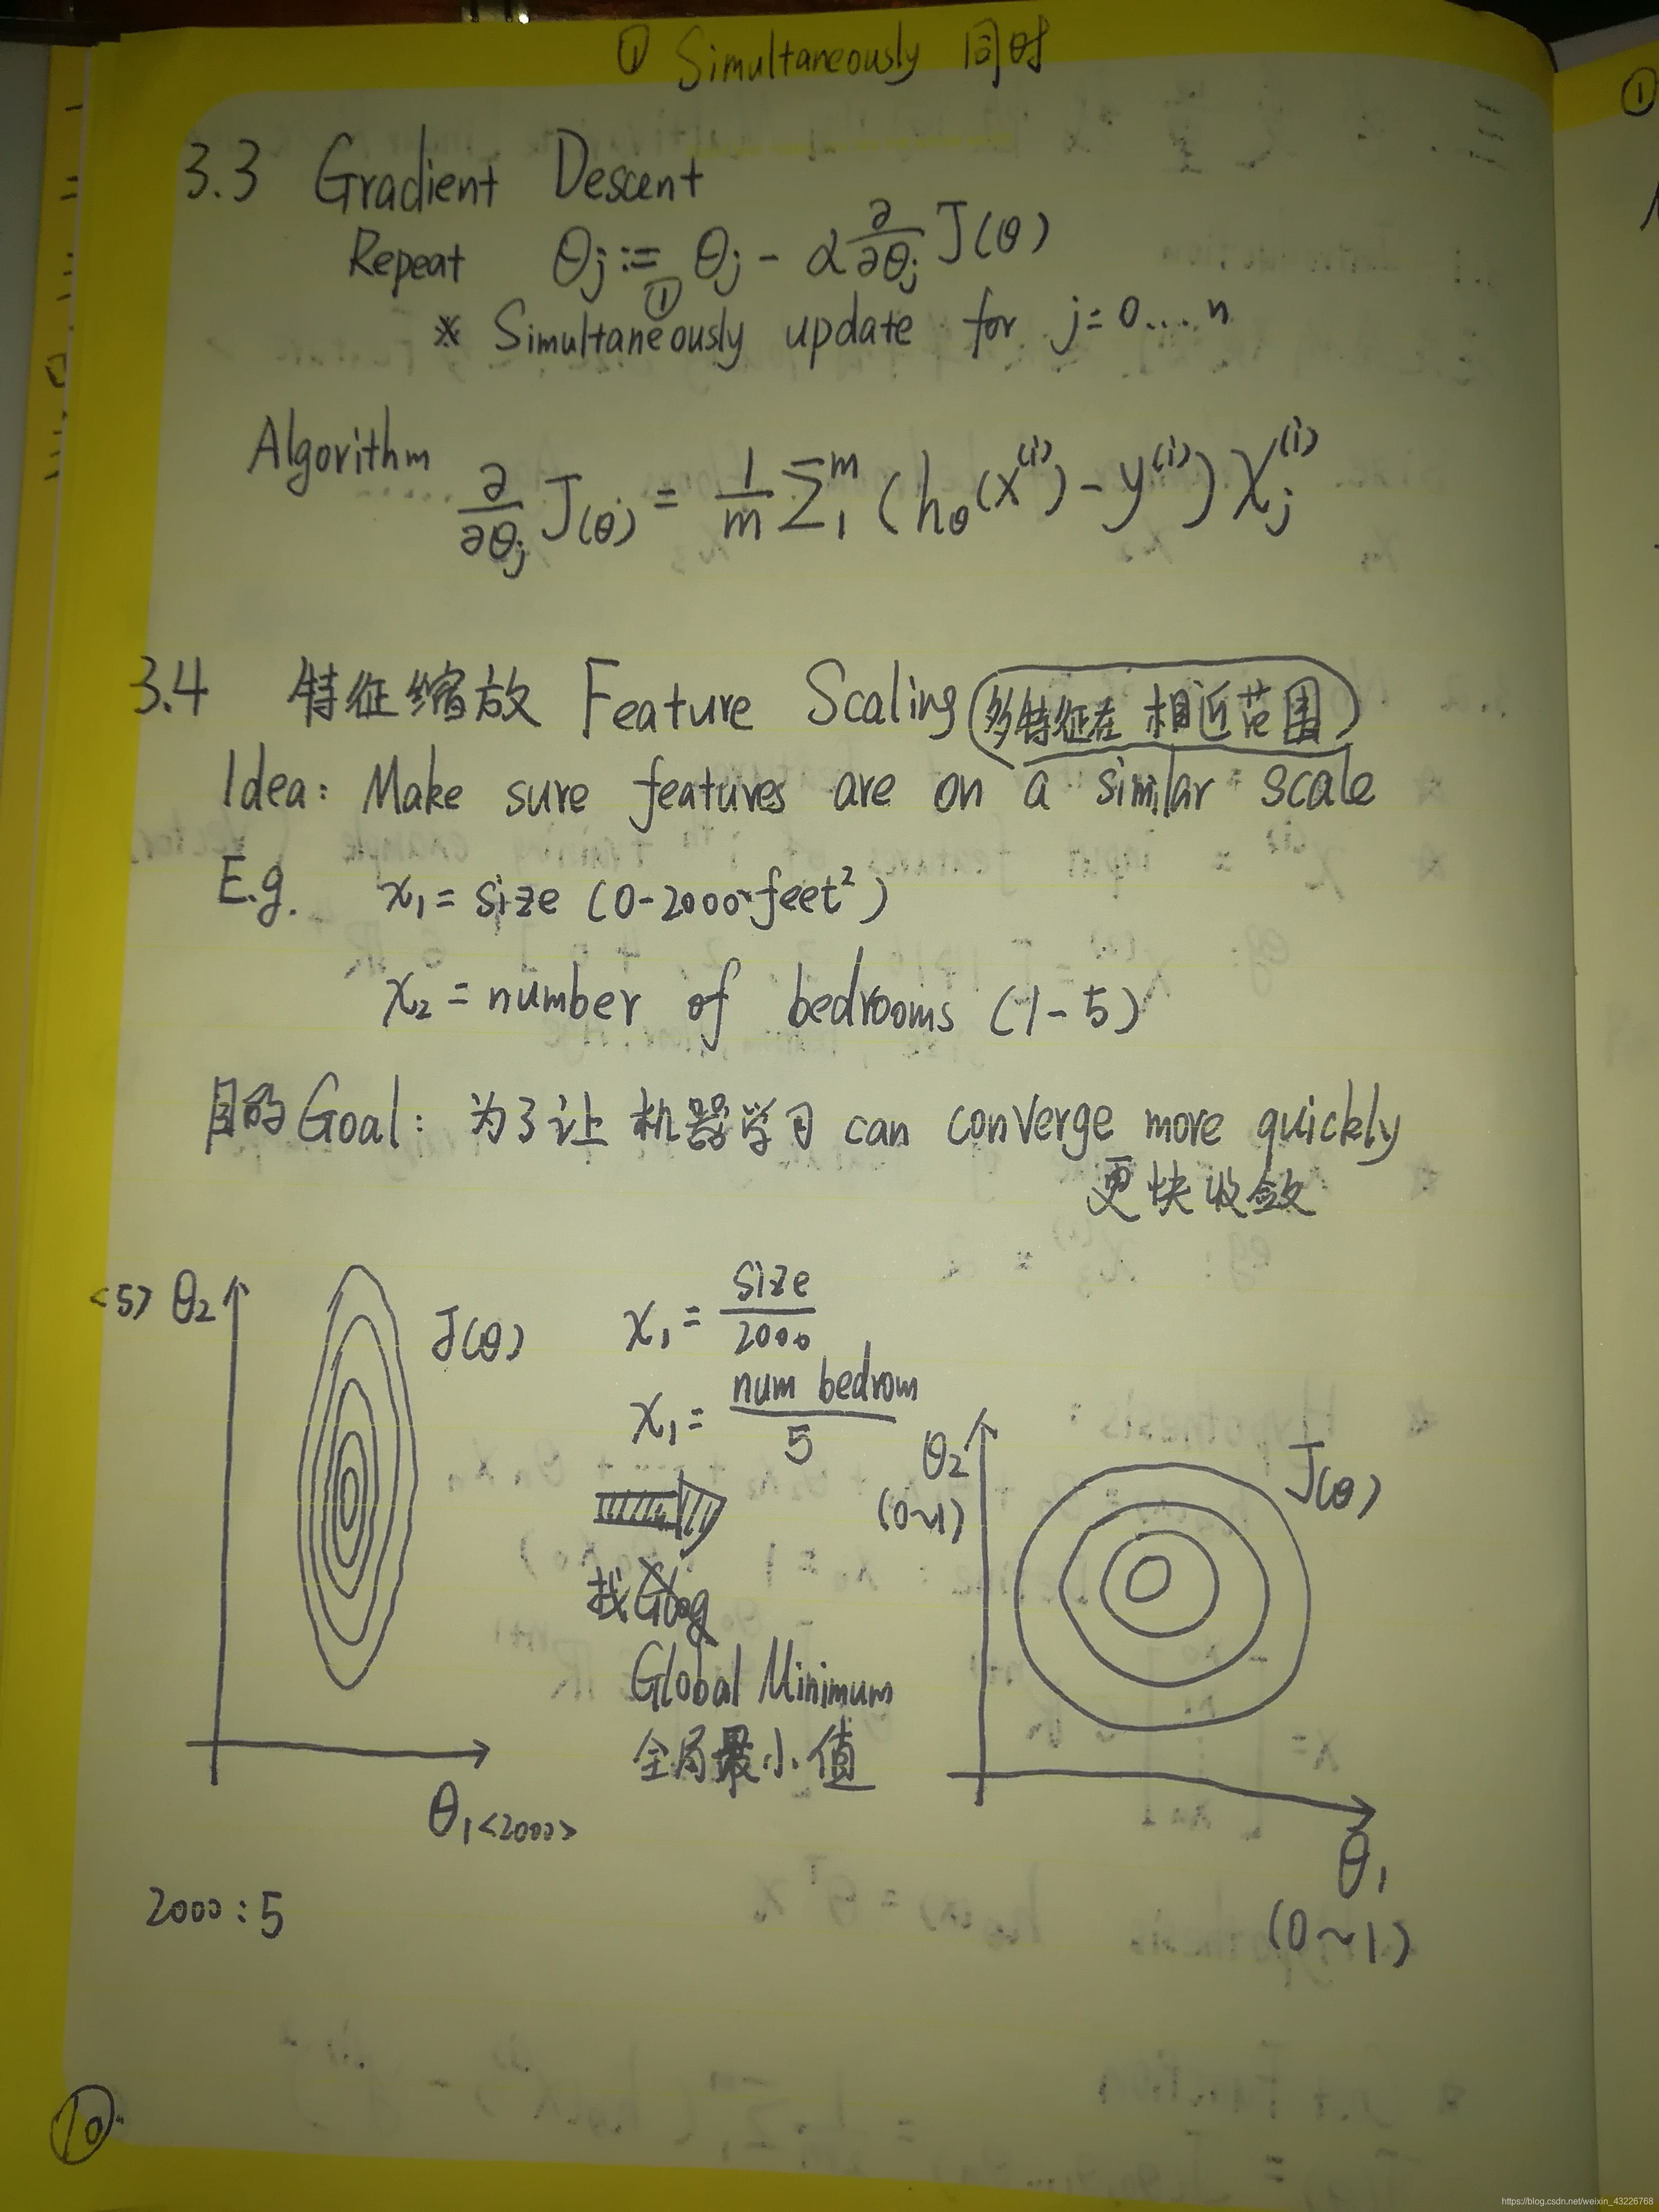 ① Simultaneously 同时
3.3 Gradient Descent
Repeat θj := θj - α ∂/∂θj J(θ)
①
* Simultaneously update for j=0....n
Algorithm
∂/∂θj J(θ) = 1/m Σ₁ᵐ (hθ(x⁽ⁱ⁾) - y⁽ⁱ⁾) xj⁽ⁱ⁾
3.4 特征缩放 Feature Scaling (多特征在相近范围)
Idea: Make sure features are on a similar scale
E.g. x₁ = size (0-2000 feet²)
x₂ = number of bedrooms (1-5)
目的 Goal: 为了让机器学习 can converge more quickly
更快收敛
<5> θ₂
J(θ)
x₁ = size/2000
x₁ = num bedrom/5
θ₂
(0~1)
J(θ)
找
Global Minimum
全局最小值
θ₁<2000>
θ₁
(0~1)
2000:5
10
①
https://blog.csdn.net/weixin_43226768